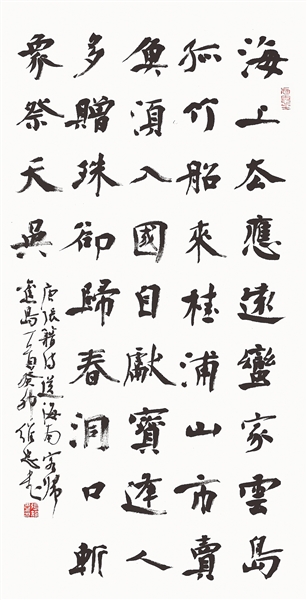 海上去應遠蠻家雲島
孤竹船來桂浦山市賣
魚湏入國自獻寶逢人
多贈珠卻歸春洞口斬
象祭天吳
唐張籍詩送海南客歸
舊島丁酉癸卯維忠書